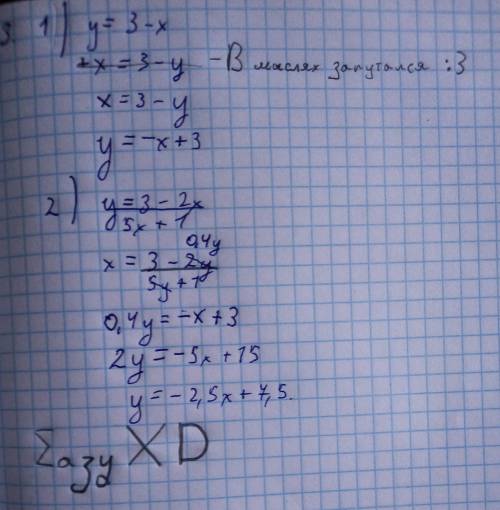 3. 1) y = 3 - x
+x = 3 - y - В мыслях запутался :3
x = 3 - y
y = -x + 3
2) y = 3 - 2x
5x + 1
0,4y
x = 3 - 2y
5y + 1
0,4y = -x + 3
2y = -5x + 15
y = -2,5x + 7,5.
Σазу XD